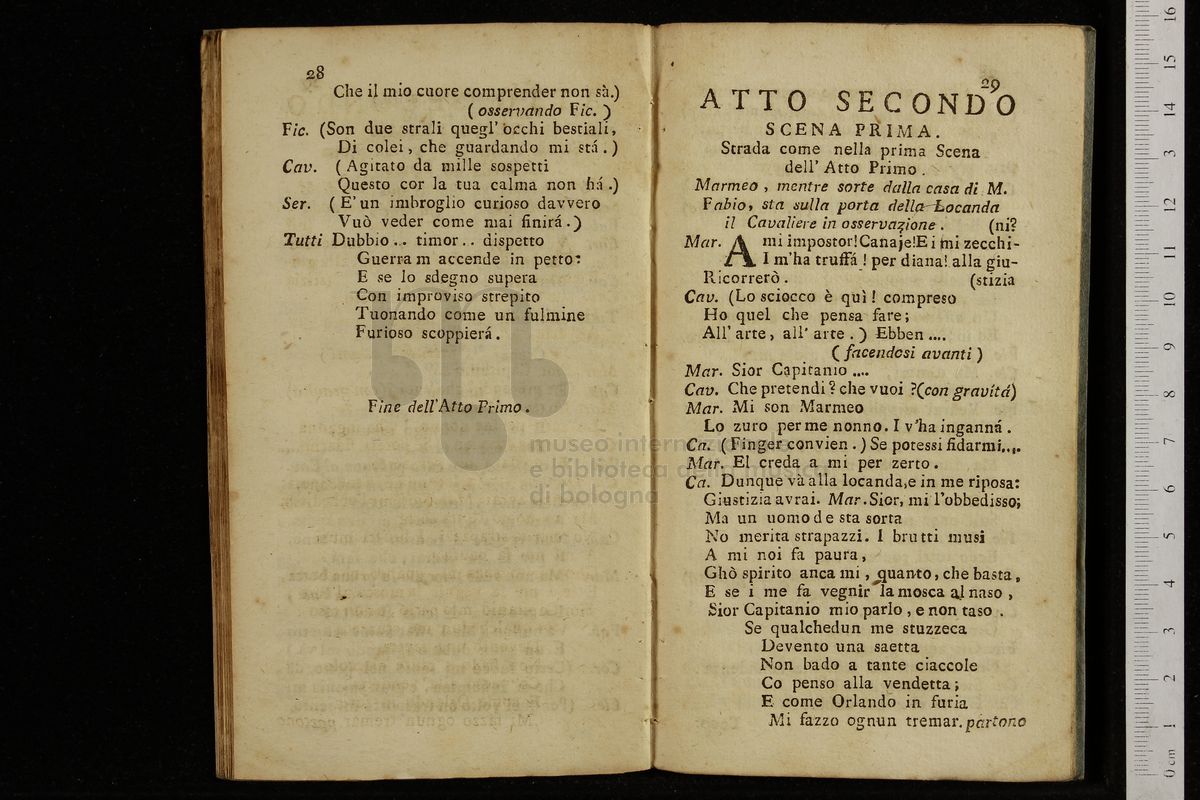 28
Che il mio cuore comprender non sà.)
( osservando Fic. )
Fic. (Son due strali quegl' occhi bestiali,
Di colei, che guardando mi stá.)
Cav. (Agitato da mille sospetti
Questo cor la tua calma non há.)
Ser. (E' un imbroglio curioso davvero
Vuò veder come mai finirá.)
Tutti Dubbio .. timor .. dispetto
Guerra m accende in petto:
E se lo sdegno supera
Con improviso strepito
Tuonando come un fulmine
Furioso scoppierá.
Fine dell'Atto Primo.
29
ATTO SECONDO
SCENA PRIMA.
Strada come nella prima Scena
dell' Atto Primo.
Marmeo, mentre sorte dalla casa di M.
Fabio, sta sulla porta della Locanda
il Cavaliere in osservazione. (ni?
Mar. A mi impostor! Canaje! E i mi zecchi-
I m'ha truffá! per diana! alla giu-
Ricorrerò. (stizia
Cav. (Lo sciocco è quì! compreso
Ho quel che pensa fare;
All' arte, all' arte.) Ebben ....
( facendosi avanti )
Mar. Sior Capitanio ....
Cav. Che pretendi? che vuoi?(con gravitá)
Mar. Mi son Marmeo
Lo zuro per me nonno. I v'ha inganná.
Ca. (Finger convien.) Se potessi fidarmi....
Mar. El creda a mi per zerto.
Ca. Dunque và alla locanda, e in me riposa:
Giustizia avrai. Mar. Sior, mi l'obbedisso;
Ma un uomo de sta sorta
No merita strapazzi. I brutti musi
A mi noi fa paura,
Ghò spirito anca mi, quanto, che basta,
E se i me fa vegnir la mosca al naso,
Sior Capitanio mio parlo, e non taso.
Se qualchedun me stuzzeca
Devento una saetta
Non bado a tante ciaccole
Co penso alla vendetta;
E come Orlando in furia
Mi fazzo ognun tremar. partono
museo internazionale
e biblioteca della musica
di bologna
0 cm 1 2 3 4 5 6 7 8 9 10 11 12 13 14 15 16